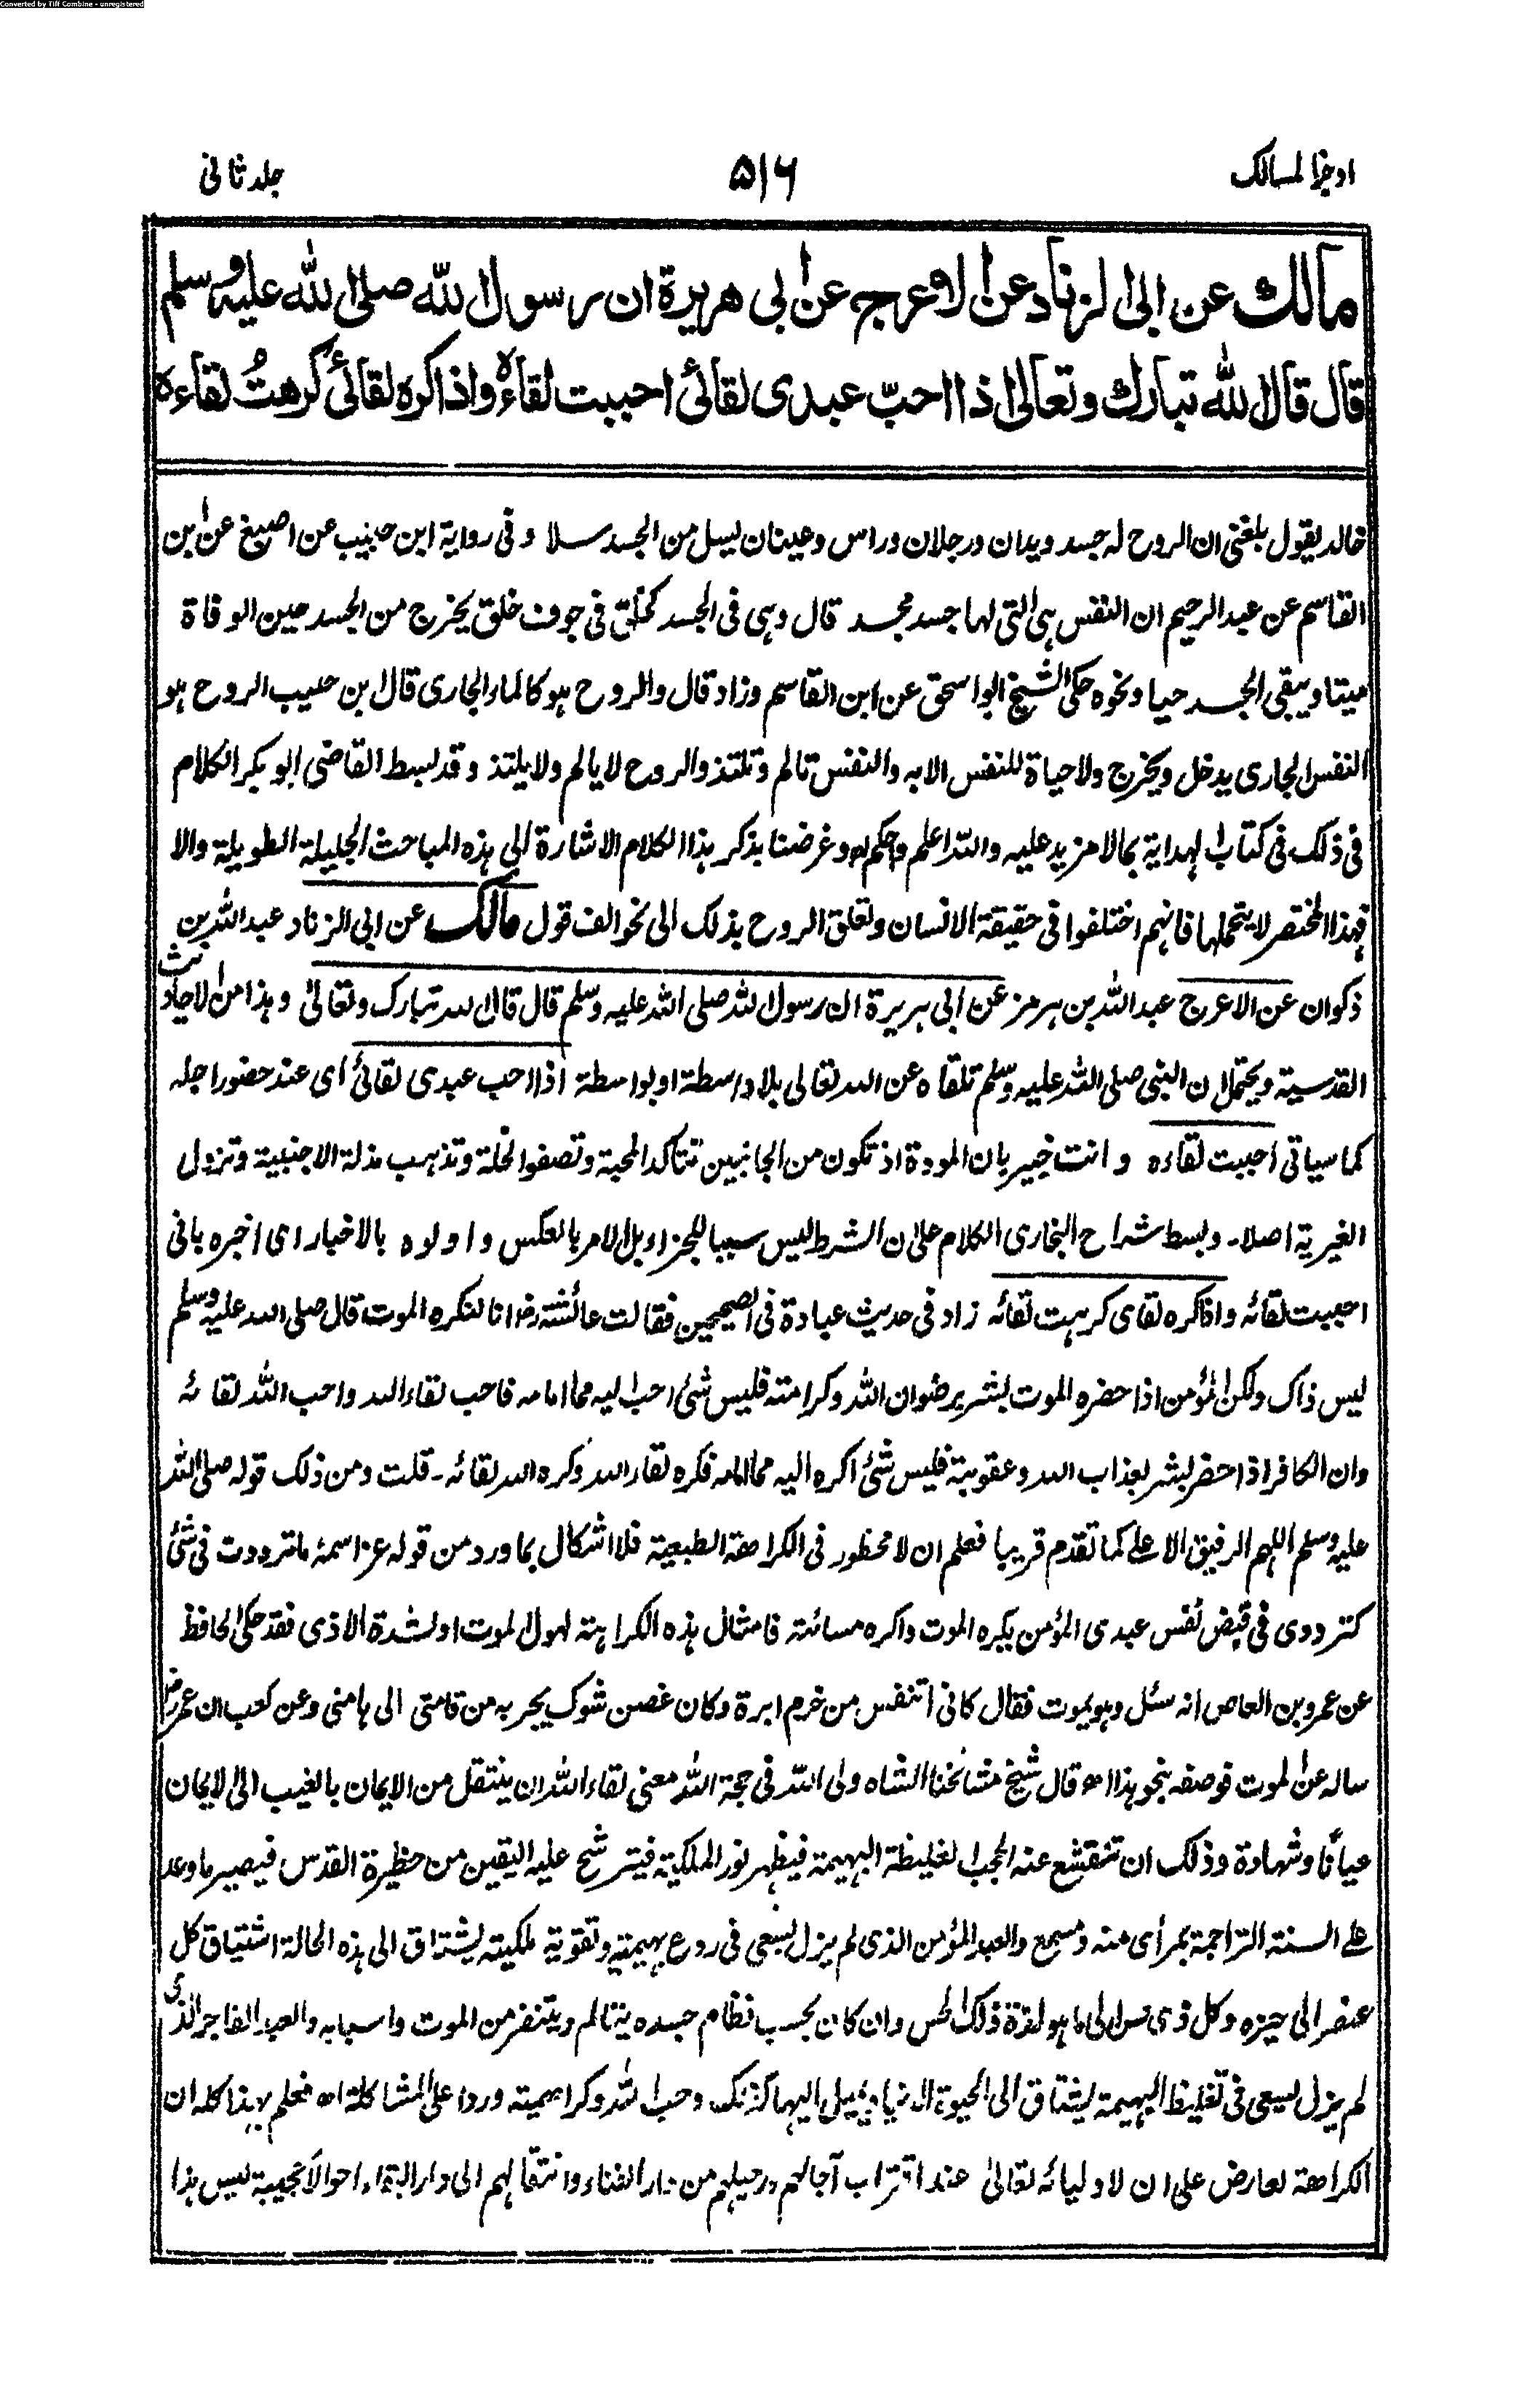 Converted by Tiff Combine - unregistered
اوجز المسالک ۵۱۶ جلد ثانی
مالك عن ابی الزناد عن الاعرج عن ابی هريرة ان رسول الله صلی الله عليه وسلم
قال قال الله تبارك وتعالی اذا احبّ عبدی لقائی احببت لقاءه واذا کره لقائی کرهتُ لقاءه
خالد یقول بلغنی ان الروح له جسد ویدان ورجلان وراس وعینان یسل من الجسد سلا وفی روایة ابن حبیب عن اصبغ عن ابن
القاسم عن عبد الرحیم ان النفس هی التی لها جسد مجسد قال وهی فی الجسد کخلق فی جوف خلق یخرج من الجسد حین الوفاة
میتا ویبقی الجسد حیا ونحوه حکی الشیخ ابو اسحق عن ابن القاسم وزاد قال والروح هو کالماء الجاری قال ابن حبیب الروح هو
النفس الجاری یدخل ویخرج ولا حیاة للنفس الا به والنفس تالم وتلتذ والروح لا یالم ولا یلتذ وقد بسط القاضی ابو بکر الکلام
فی ذلک فی کتاب الهدایة بما لا مزید علیه والله اعلم واحکم اه وغرضنا بذکر هذا الکلام الاشارة الی هذه المباحث الجلیلة الطویلة والا
فهذا المختصر لا یتحملها فانهم اختلفوا فی حقیقة الانسان وتعلق الروح بذلک الی نحو الف قول مالک عن ابی الزناد عبد الله بن
ذکوان عن الاعرج عبد الله بن هرمز عن ابی هریرة ان رسول الله صلی الله علیه وسلم قال قال الله تبارک وتعالیٰ وهذا من الاحادیث
القدسیة ویحتمل ان النبی صلی الله علیه وسلم تلقاه عن الله تعالی بلا واسطة او بواسطة اذا احب عبدی لقائی ای عند حضور اجله
کما سیاتی احببت لقاءه وانت خبیر بان المودة اذ تکون من الجانبین تتاکد المحبة وتصفو الخلة وتذهب مذلة الاجنبیة وتزول
الغیریة اصلا۔ وبسط شراح البخاری الکلام علی ان الشرط لیس سببا للجزاء بل الامر بالعکس واولوه بالاخبار ای اخبره بانی
احببت لقائه واذا کره لقای کرهت لقائه زاد فی حدیث عبادة فی الصحیحین فقالت عائشة رض انا لنکره الموت قال صلی الله علیه وسلم
لیس ذاک ولکن المؤمن اذا حضره الموت بشر برضوان الله وکرامته فلیس شئ احب الیه مما امامه فاحب لقاء الله واحب الله لقائه
وان الکافر اذا حضر بشر بعذاب الله وعقوبته فلیس شئ اکره الیه مما امامه فکره لقاء الله وکره الله لقائه۔ قلت ومن ذلک قوله صلی الله
علیه وسلم اللهم الرفیق الاعلے کما تقدم قریبا فعلم ان لا محظور فی الکراهة الطبعیة فلا اشکال بما ورد من قوله عز اسمه ما ترددت فی شئ
کترددی فی قبض نفس عبدی المؤمن یکره الموت واکره مسائته فامثال هذه الکراهة لهول الموت او لشدة الاذی فقد حکی الحافظ
عن عمرو بن العاص انه سئل وهو یموت فقال کانی اتنفس من خرم ابرة وکان غصن شوک یجر به من قامتی الی هامتی وعن کعب ان عمر رض
ساله عن الموت فوصفه بنحو هذا اه وقال شیخ مشائخنا الشاه ولی الله فی حجة الله معنی لقاء الله ان ینتقل من الایمان بالغیب الی الایمان
عیانًا وشهادة وذلک ان تنقشع عنه الحجب الغلیظة البهیمة فیظهر نور الملکیة فیترشح علیه الیقین من حظیرة القدس فیصیر ما وعد
علے السنة التراجمة بمرأی منه ومسمع والعبد المؤمن الذی لم یزل یسعی فی ردع بهیمته وتقویة ملکیته یشتاق الی هذه الحالة اشتیاق کل
عنصر الی حیزه وکل ذی حس الی ما هو لذة ذلک الحس وان کان بحسب نظام جسده یتالم ویتنفر من الموت واسبابه والعبد الفاجر الذی
لم یزل یسعی فی تغلیظ البهیمة یشتاق الی الحیوة الدنیا ویمیل الیها کذلک وحب الله وکراهیته وردا علی المشاکلة اه فعلم بهذا کله ان
الکراهة لعارض علی ان لاولیائه تعالیٰ عند اقتراب آجالهم ورحیلهم من دار الفناء وانتقالهم الی دار البقاء احوالًا عجیبة لیس هذا